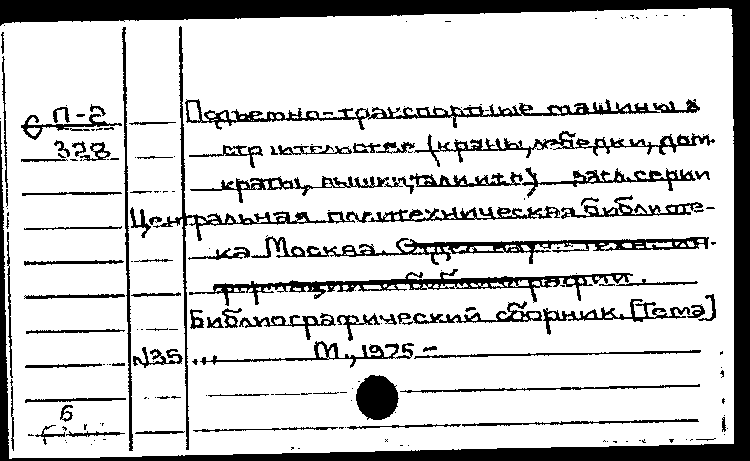 С П-2
328
Подъемно-транспортные машины в
строительстве (краны, лебедки, дом-
краты, вышки, тали и т.п.) загл. серии
Центральная политехническая библиоте-
ка Москва. Отдел науч.-техн. ин-
формации и библиографии.
Библиографический сборник. [Тема]
N35 ... М., 1975 -
6